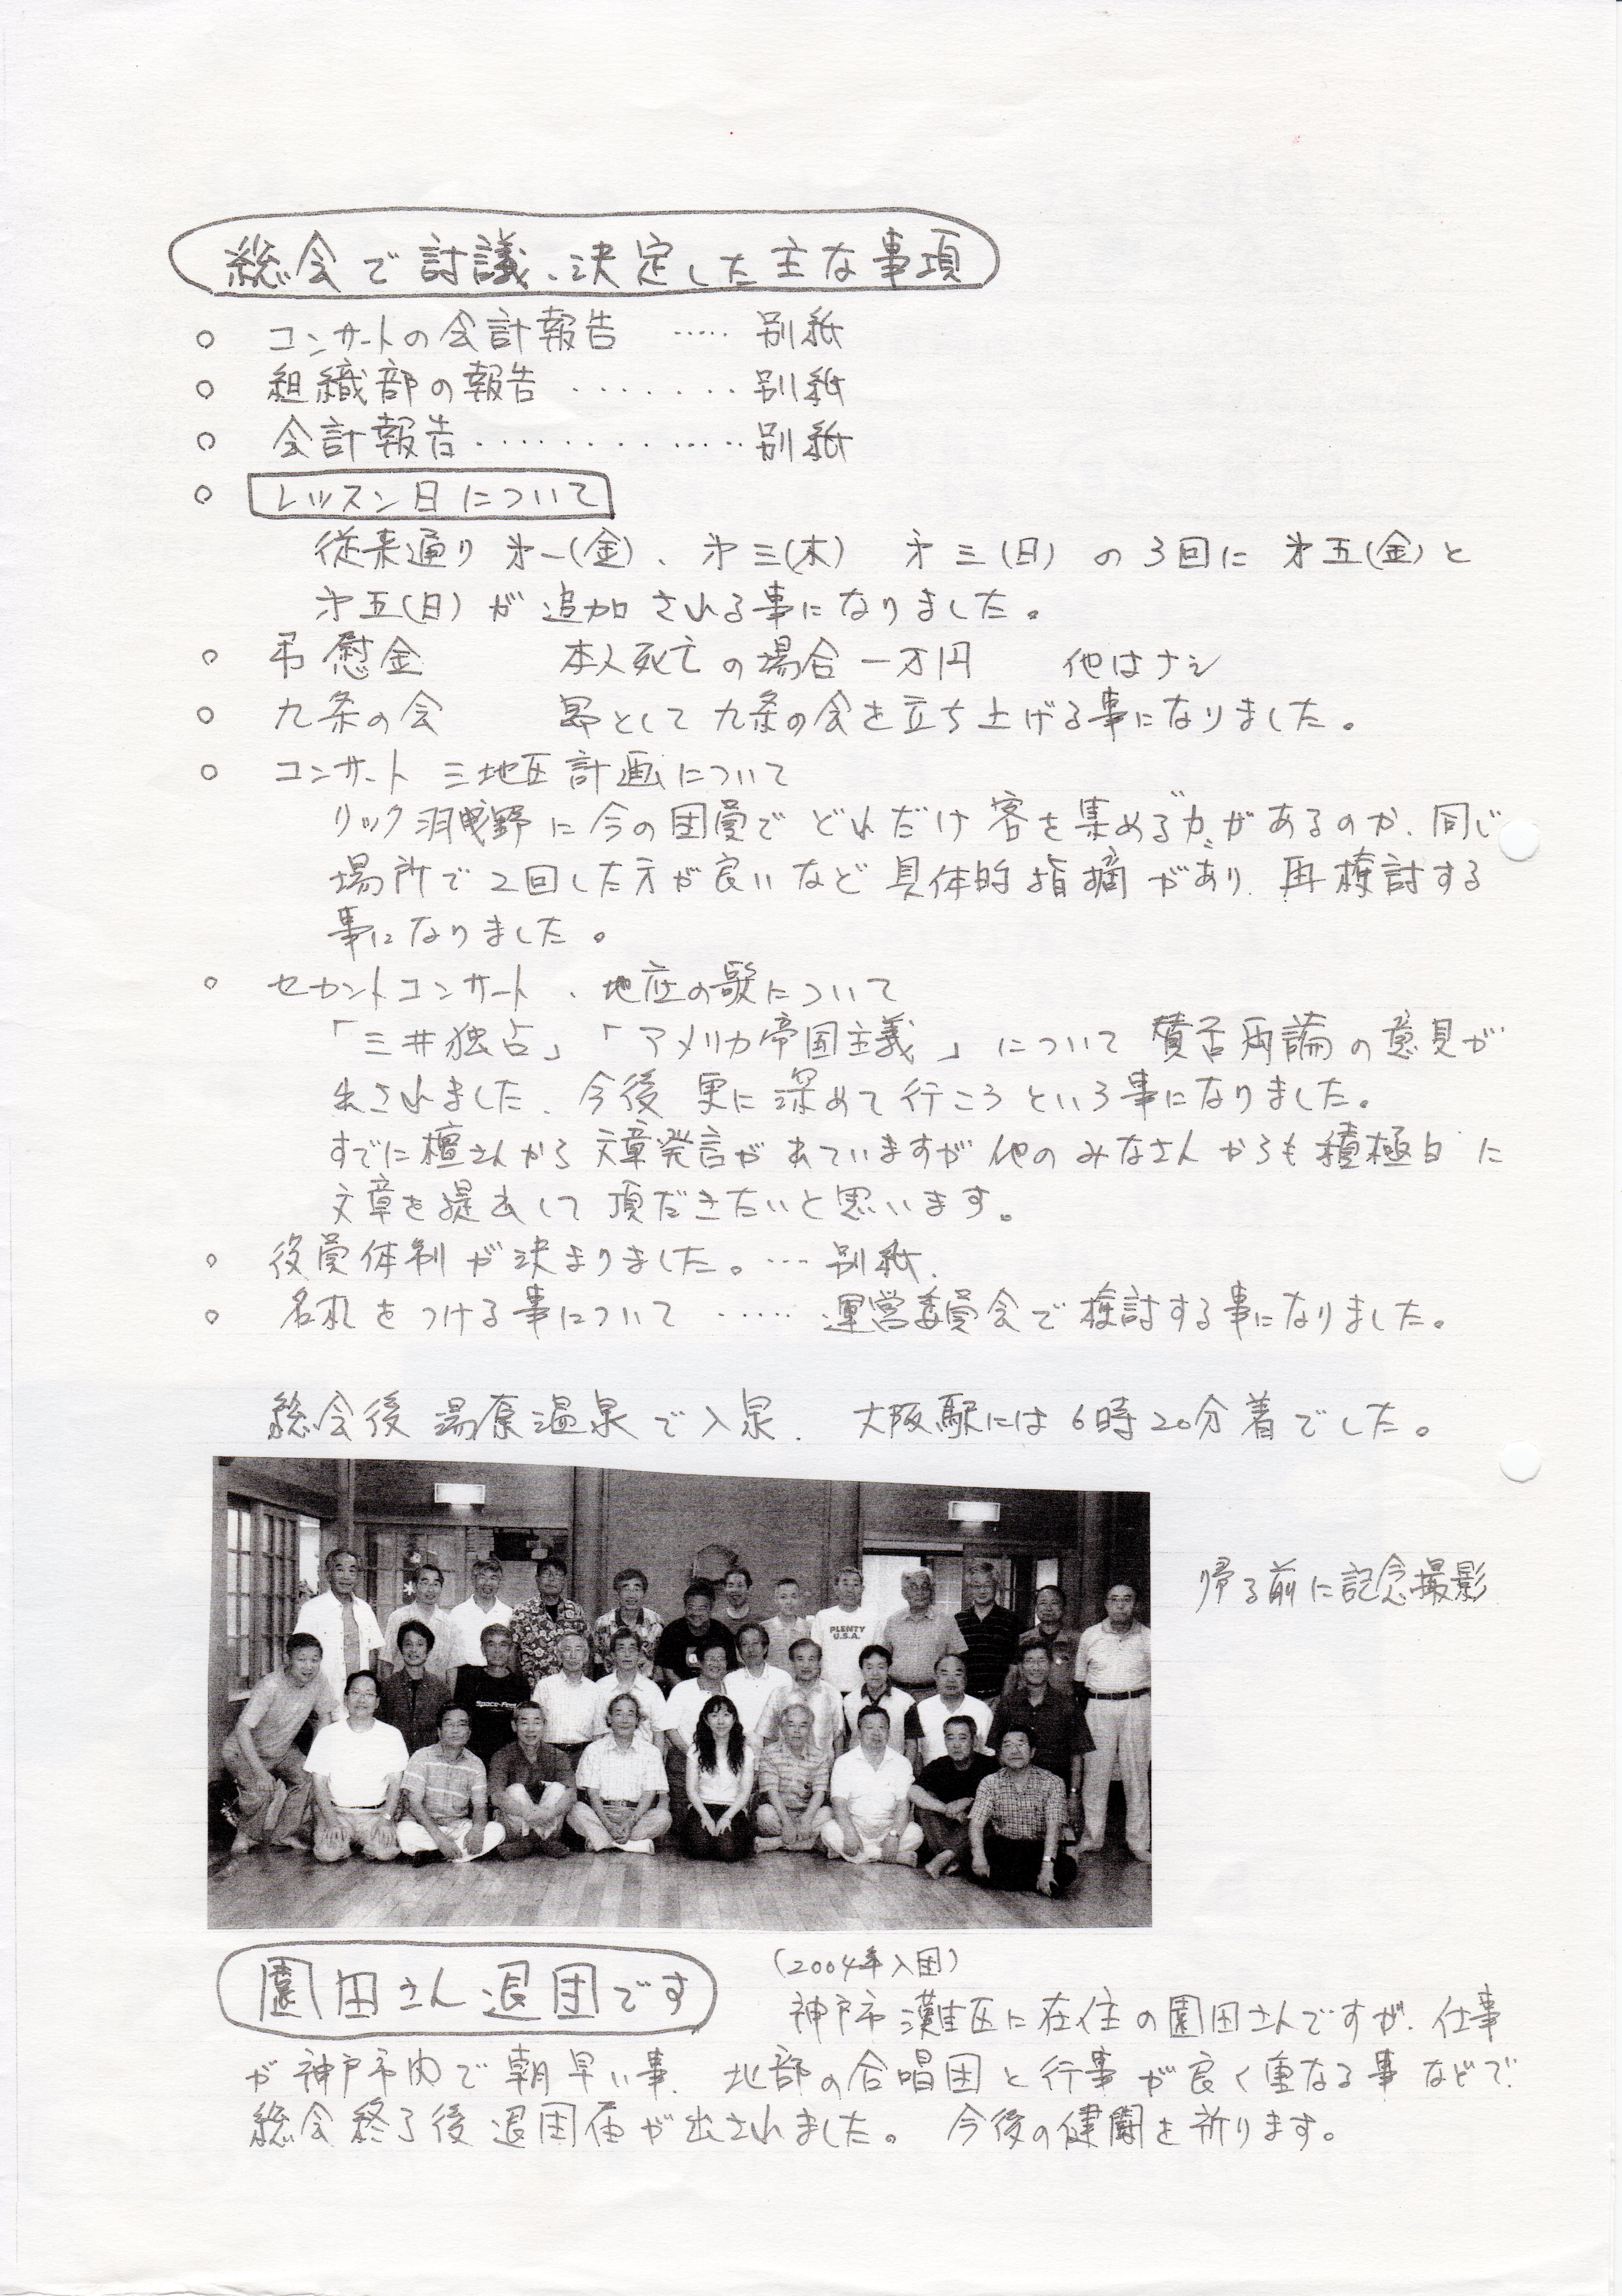 総会で討議、決定した主な事項
○ コンサートの会計報告 ‥‥‥ 別紙
○ 組織部の報告 ‥‥‥‥ 別紙
○ 会計報告 ‥‥‥‥‥‥ 別紙
○ レッスン日について
従来通り 才一(金)、才三(木) 才三(日) の3回に 才五(金)と
才五(日)が 追加 される事になりました。
○ 弔慰金 本人死亡の場合 一万円 他はナシ
○ 九条の会 昴として九条の会を立ち上げる事になりました。
○ コンサート 三地区計画について
リック羽曳野に今の団員で どれだけ 客を集める力があるのか、同じ
場所で2回した方が良いなど 具体的指摘があり、再検討する
事になりました。
○ セカンドコンサート、地底の歌について
「三井独占」「アメリカ帝国主義」について 賛否両論の意見が
出されました、今後 更に深めて行こうという事になりました。
すでに檀さんから 文章発言が出ていますが 他のみなさんからも積極的に
文章を提出して 頂だきたいと思います。
○ 役員体制が決まりました。‥‥ 別紙、
○ 名札をつける事について ‥‥‥ 運営委員会で検討する事になりました。
総会後 湯原温泉で入泉、 大阪駅には6時20分着でした。
PLENTY
U.S.A.
帰る前に記念撮影
園田さん退団です
(2004年入団)
神戸市灘区に在住の園田さんですが、仕事
が神戸市内で朝早い事、地部の合唱団と行事が良く重なる事などで
総会終了後 退団届が出されました。 今後の健闘を祈ります。